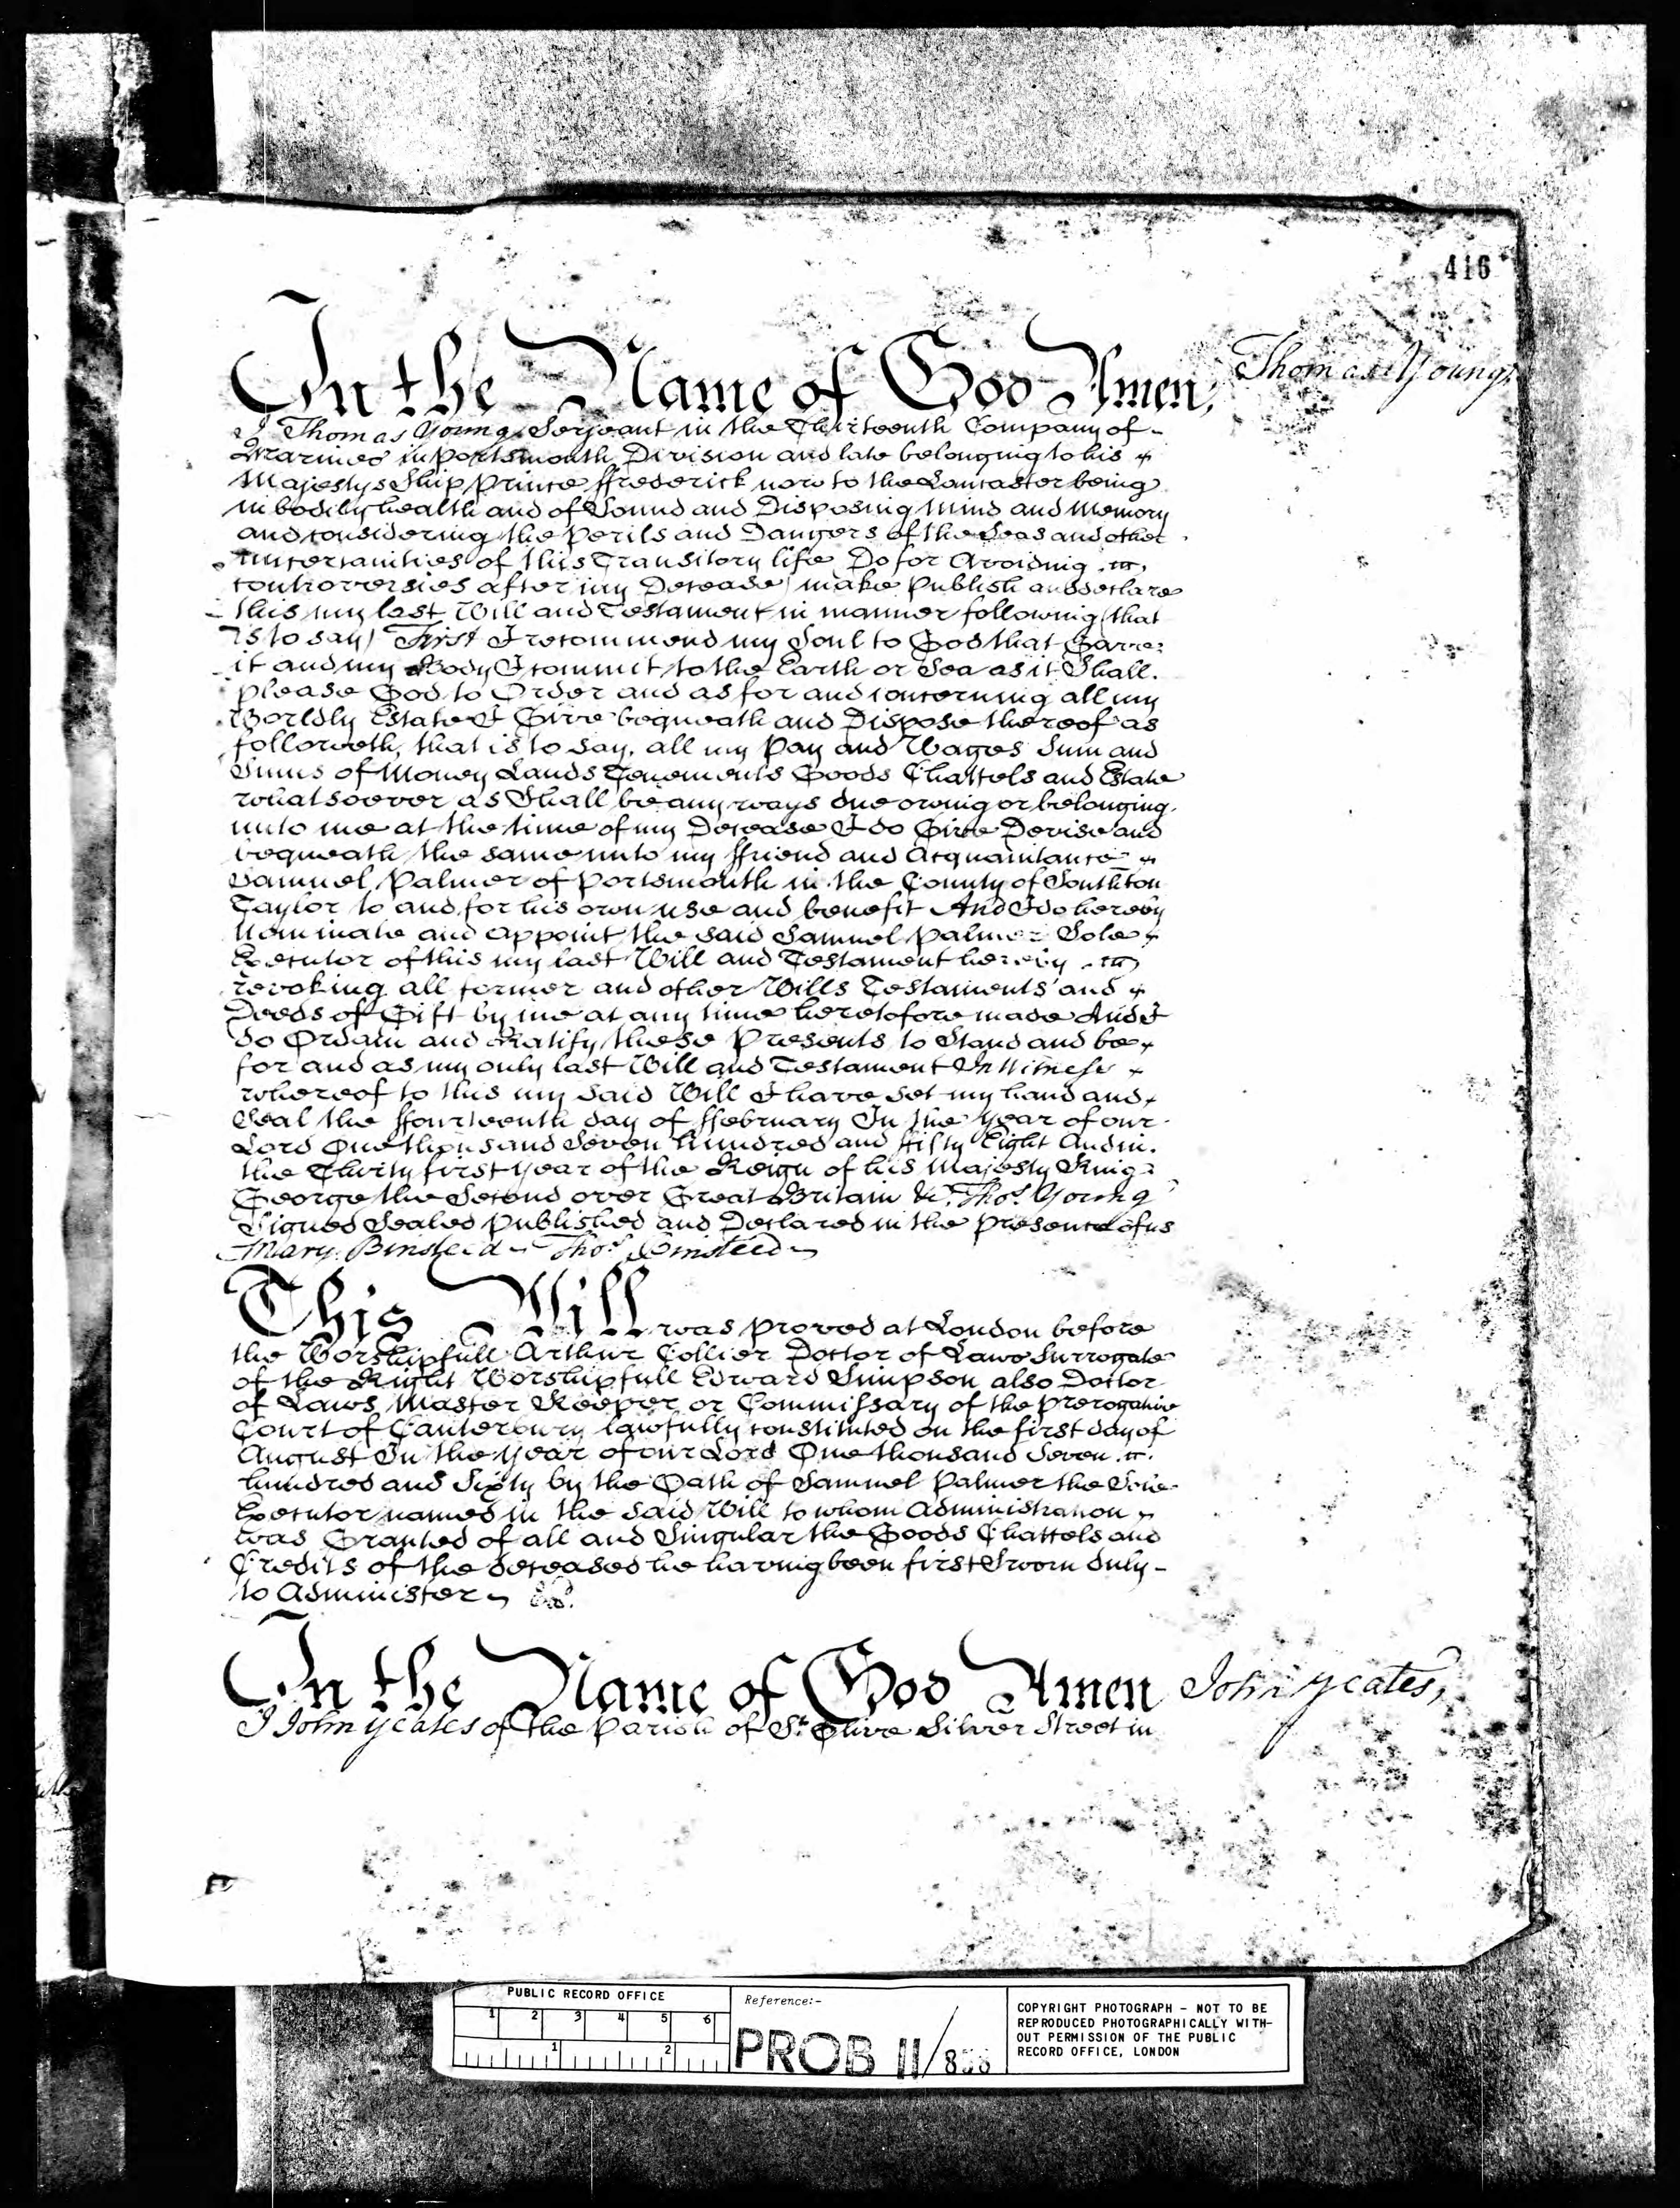 416
In the Name of God Amen, Thomas Young.
I Thomas Young Serjeant in the Thirteenth Company of
Marines in Portsmouth Division and late belonging to his
Majestys Ship Prince ffrederick now to the Lancaster being
in bodily health and of Sound and Disposing Mind and Memory
and considering the Perils and Dangers of the Seas and other
uncertainties of this Transitory life Do for Avoiding
controversies after my Decease make Publish and declare
this my last Will and Testament in manner following (that
is to say) First I recommend my Soul to God that Gave
it and my Body I commit to the Earth or Sea as it Shall
please God to Order and as for and concerning all my
Worldly Estate I Give bequeath and Dispose thereof as
followeth, that is to say, all my Pay and Wages Sum and
Sums of Money Lands Tenements Goods Chattels and Estate
whatsoever as Shall be any ways due owing or belonging
unto me at the time of my Decease I do Give Devise and
bequeath the same unto my ffriend and Acquaintance
Samuel Palmer of Portsmouth in the County of Southton
Taylor to and for his own use and benefit And I do hereby
Nominate and appoint the said Samuel Palmer Sole
Executor of this my last Will and Testament hereby
revoking all former and other Wills Testaments and
Deeds of Gift by me at any time heretofore made And I
do Ordain and Ratify these Presents to Stand and be
for and as my only last Will and Testament In Witness
whereof to this my said Will I have set my hand and
Seal the ffourteenth day of ffebruary In the Year of our
Lord One thousand Seven hundred and fifty Eight And in
the Thirty first year of the Reign of his Majesty King
George the Second over Great Britain &c. Thos. Young
Signed Sealed Published and Declared in the presence of us
Mary Binsteed Thos. Binsteed
This Will was proved at London before
the Worshipfull Arthur Collier Doctor of Laws Surrogate
of the Right Worshipfull Edward Simpson also Doctor
of Laws Master Keeper or Commissary of the Prerogative
Court of Canterbury lawfully constituted on the first day of
August In the year of our Lord One thousand Seven
hundred and Sixty by the Oath of Samuel Palmer the Sole
Executor named in the said Will to whom Administration
was Granted of all and Singular the Goods Chattels and
Credits of the deceased he having been first Sworn duly
to Administer
In the Name of God Amen John Yeates,
I John Yeates of the Parish of St. Olive Silver Street in
PUBLIC RECORD OFFICE
1 2 3 4 5 6
1 2
Reference:-
PROB 11/858
COPYRIGHT PHOTOGRAPH - NOT TO BE
REPRODUCED PHOTOGRAPHICALLY WITH-
OUT PERMISSION OF THE PUBLIC
RECORD OFFICE, LONDON